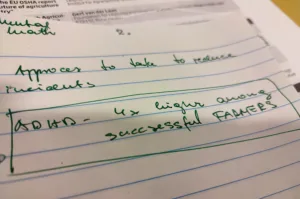 the EU OSHA report
future of agriculture
mental
math 2.
Approces to take to reduce
incidents
ADHD - 4x higher among
successful FARMERS